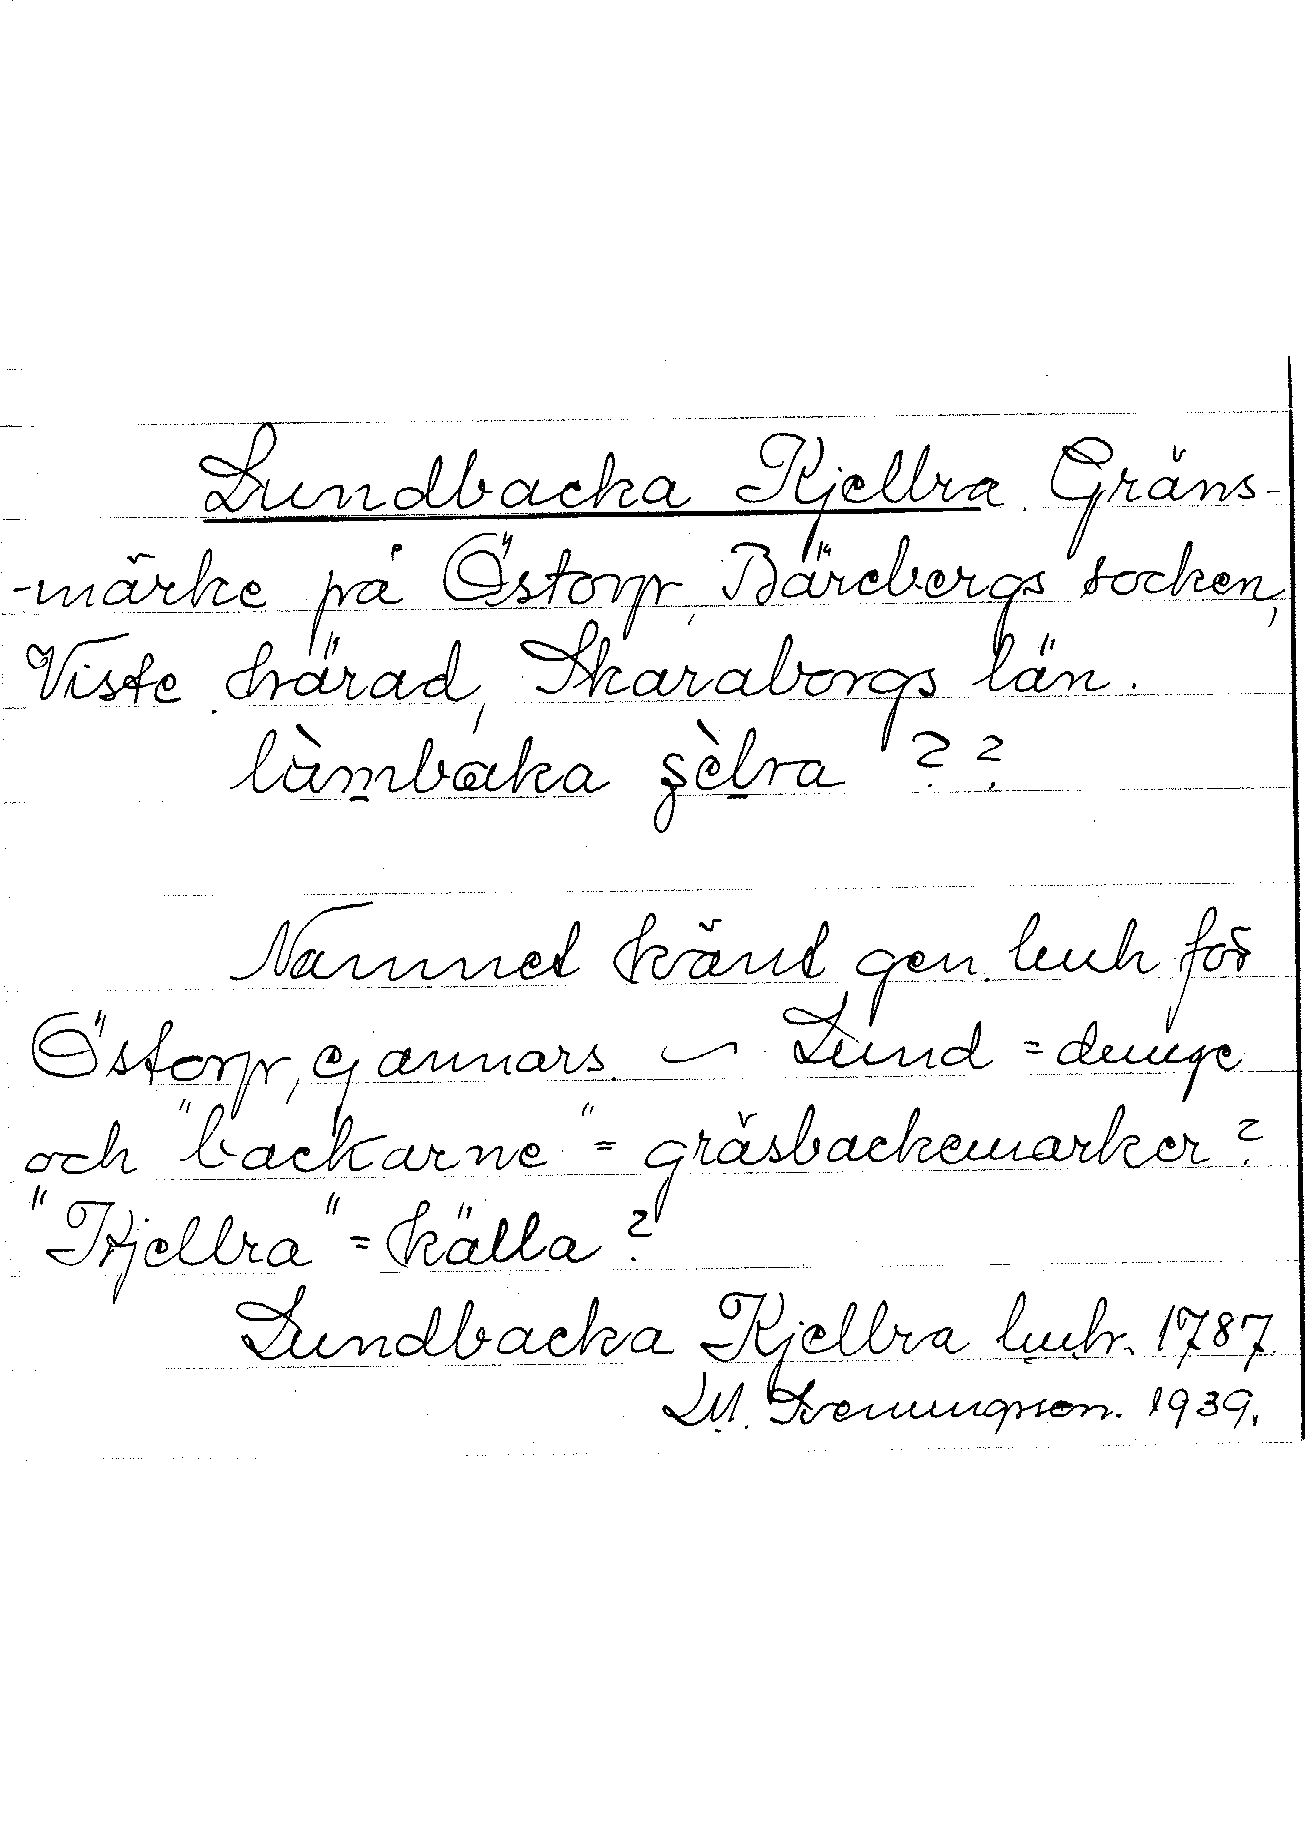 Lundbacka Kjellra Gräns-
-märke på Östorp, Bärebergs socken,
Viste härad, Skaraborgs län.
lùmbaka sèlra ??
Namnet känt gen. luh för
Östorp, ej annars. – Lund = dunge
och "backarne" = gräsbackemarker?
"Kjellra" = källa?
Lundbacka Kjellra luh. 1787
D.M. Svenungsson. 1939.